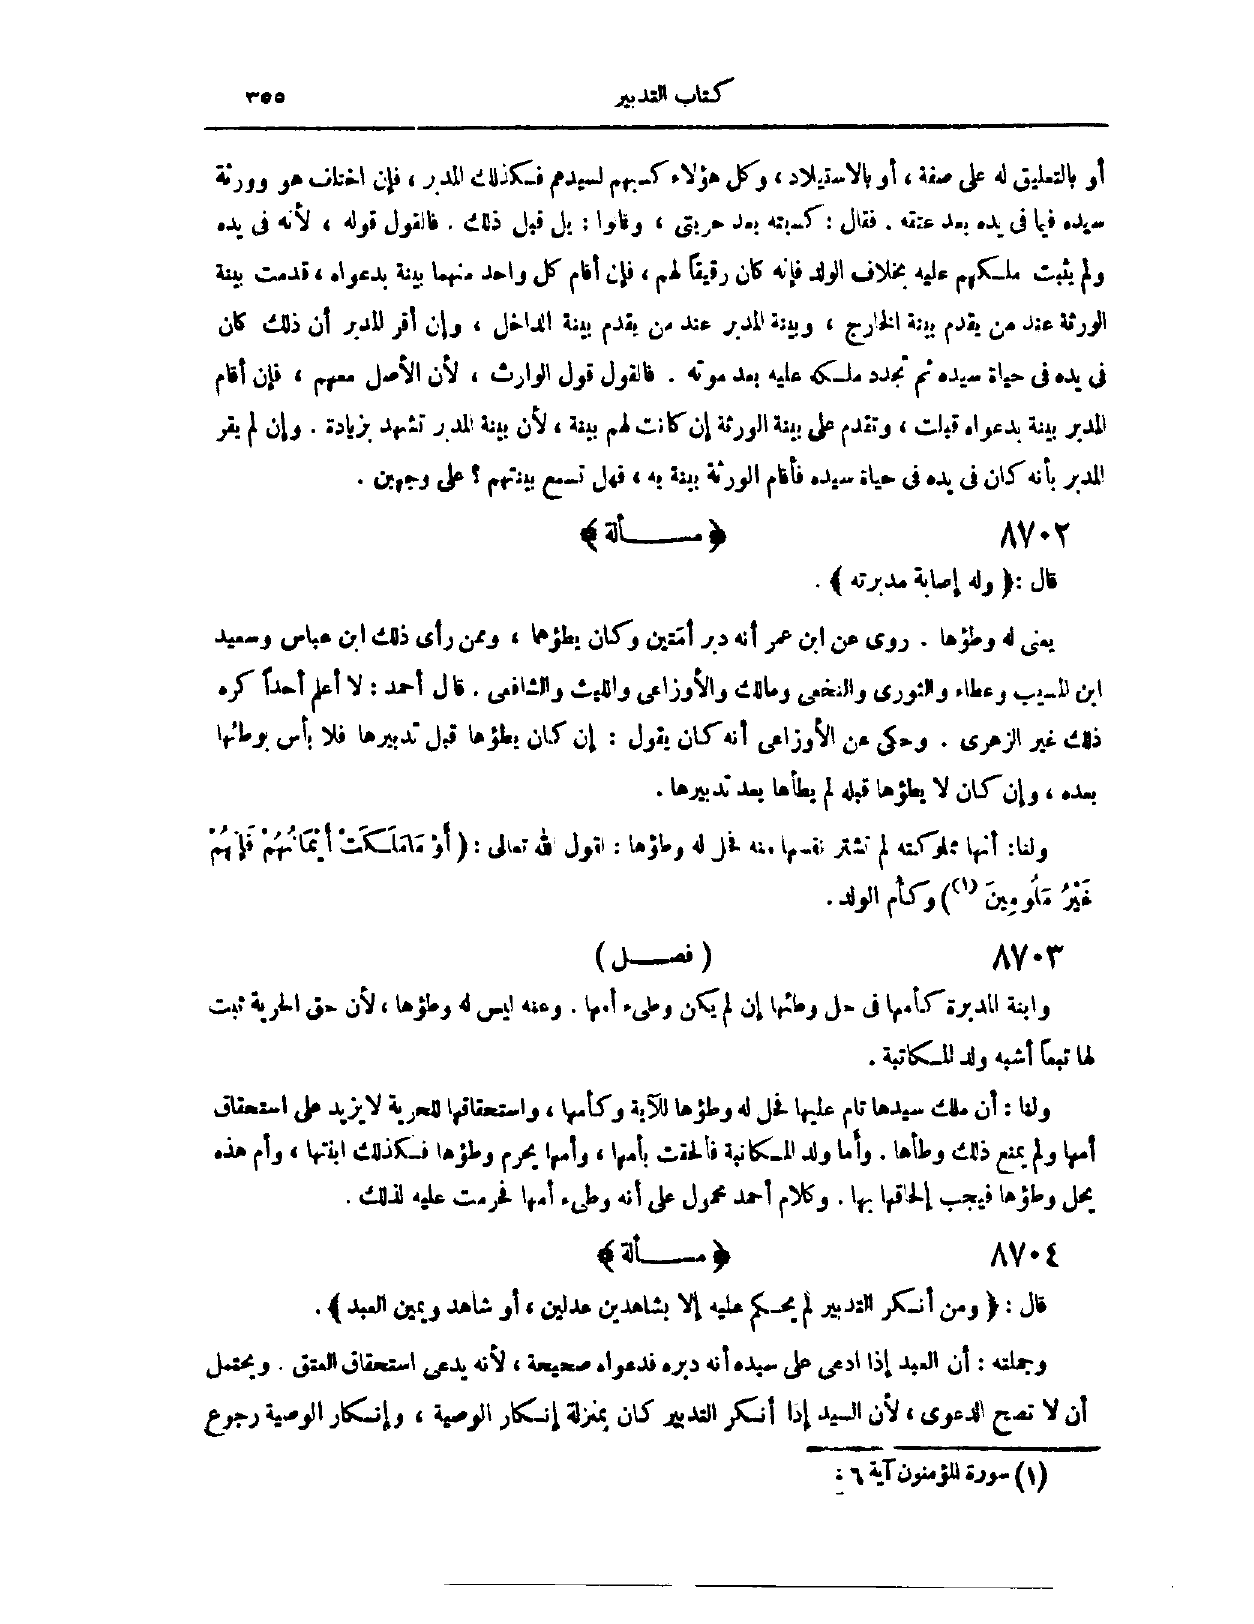 كتاب التدبير ٣٥٥
أو بالتعليق له على صفة ، أو بالاستيلاد ، وكل هؤلاء كسبهم لسيدهم فكذلك المدبر ، فإن اختلف هو وورثة
سيده فيما فى يده بعد عتقه . فقال : كسبته بعد حريتى ، وقالوا : بل قبل ذلك . فالقول قوله ، لأنه فى يده
ولم يثبت ملكهم عليه بخلاف الولد فإنه كان رقيقاً لهم ، فإن أقام كل واحد منهما بينة بدعواه ، قدمت بينة
الورثة عند من يقدم بينة الخارج ، وبينة المدبر عند من يقدم بينة الداخل ، وإن أقر المدبر أن ذلك كان
فى يده فى حياة سيده ثم تجدد ملكه عليه بعد موته . فالقول قول الوارث ، لأن الأصل معهم ، فإن أقام
المدبر بينة بدعواه قبلت ، وتقدم على بينة الورثة إن كانت لهم بينة ، لأن بينة المدبر تشهد بزيادة . وإن لم يقر
المدبر بأنه كان فى يده فى حياة سيده فأقام الورثة بينة به ، فهل تسمع بينتهم ؟ على وجهين .
٨٧٠٢ ﴿ مسألة ﴾
قال : ﴿ وله إصابة مدبرته ﴾ .
يعنى له وطؤها . روى عن ابن عمر أنه دبر أمَتين وكان يطؤهما ، وممن رأى ذلك ابن عباس وسعيد
ابن المسيب وعطاء والثورى والنخعى ومالك والأوزاعى والليث والشافعى . قال أحمد : لا أعلم أحداً كره
ذلك غير الزهرى . وحكى عن الأوزاعى أنه كان يقول : إن كان يطؤها قبل تدبيرها فلا بأس بوطئها
بعده ، وإن كان لا يطؤها قبله لم يطأها بعد تدبيرها .
ولنا : أنها مملوكته لم تشتر نفسها منه فحل له وطؤها : لقول الله تعالى : ( أَوْ مَامَلَكَتْ أَيْمَانُهُمْ فَإِنَّهُمْ
غَيْرُ مَلُومِينَ (١) ) وكأم الولد .
٨٧٠٣ ( فصل )
وابنة المدبرة كأمها فى حل وطئها إن لم يكن وطىء أمها . وعنه ليس له وطؤها ، لأن حق الحرية ثبت
لها تبعاً أشبه ولد المكاتبة .
ولنا : أن ملك سيدها تام عليها فحل له وطؤها للآية وكأمها ، واستحقاقها للحرية لا يزيد على استحقاق
أمها ولم يمنع ذلك وطأها . وأما ولد المكاتبة فألحقت بأمها ، وأمها يحرم وطؤها فكذلك ابنتها ، وأم هذه
يحل وطؤها فيجب إلحاقها بها . وكلام أحمد محمول على أنه وطىء أمها فحرمت عليه لذلك .
٨٧٠٤ ﴿ مسألة ﴾
قال : ﴿ ومن أنكر التدبير لم يحكم عليه إلا بشاهدين عدلين ، أو شاهد ويمين العبد ﴾ .
وجملته : أن العبد إذا ادعى على سيده أنه دبره فدعواه صحيحة ، لأنه يدعى استحقاق العتق . ويحتمل
أن لا تصح الدعوى ، لأن السيد إذا أنكر التدبير كان بمنزلة إنكار الوصية ، وإنكار الوصية رجوع
(١) سورة المؤمنون آية ٦ .